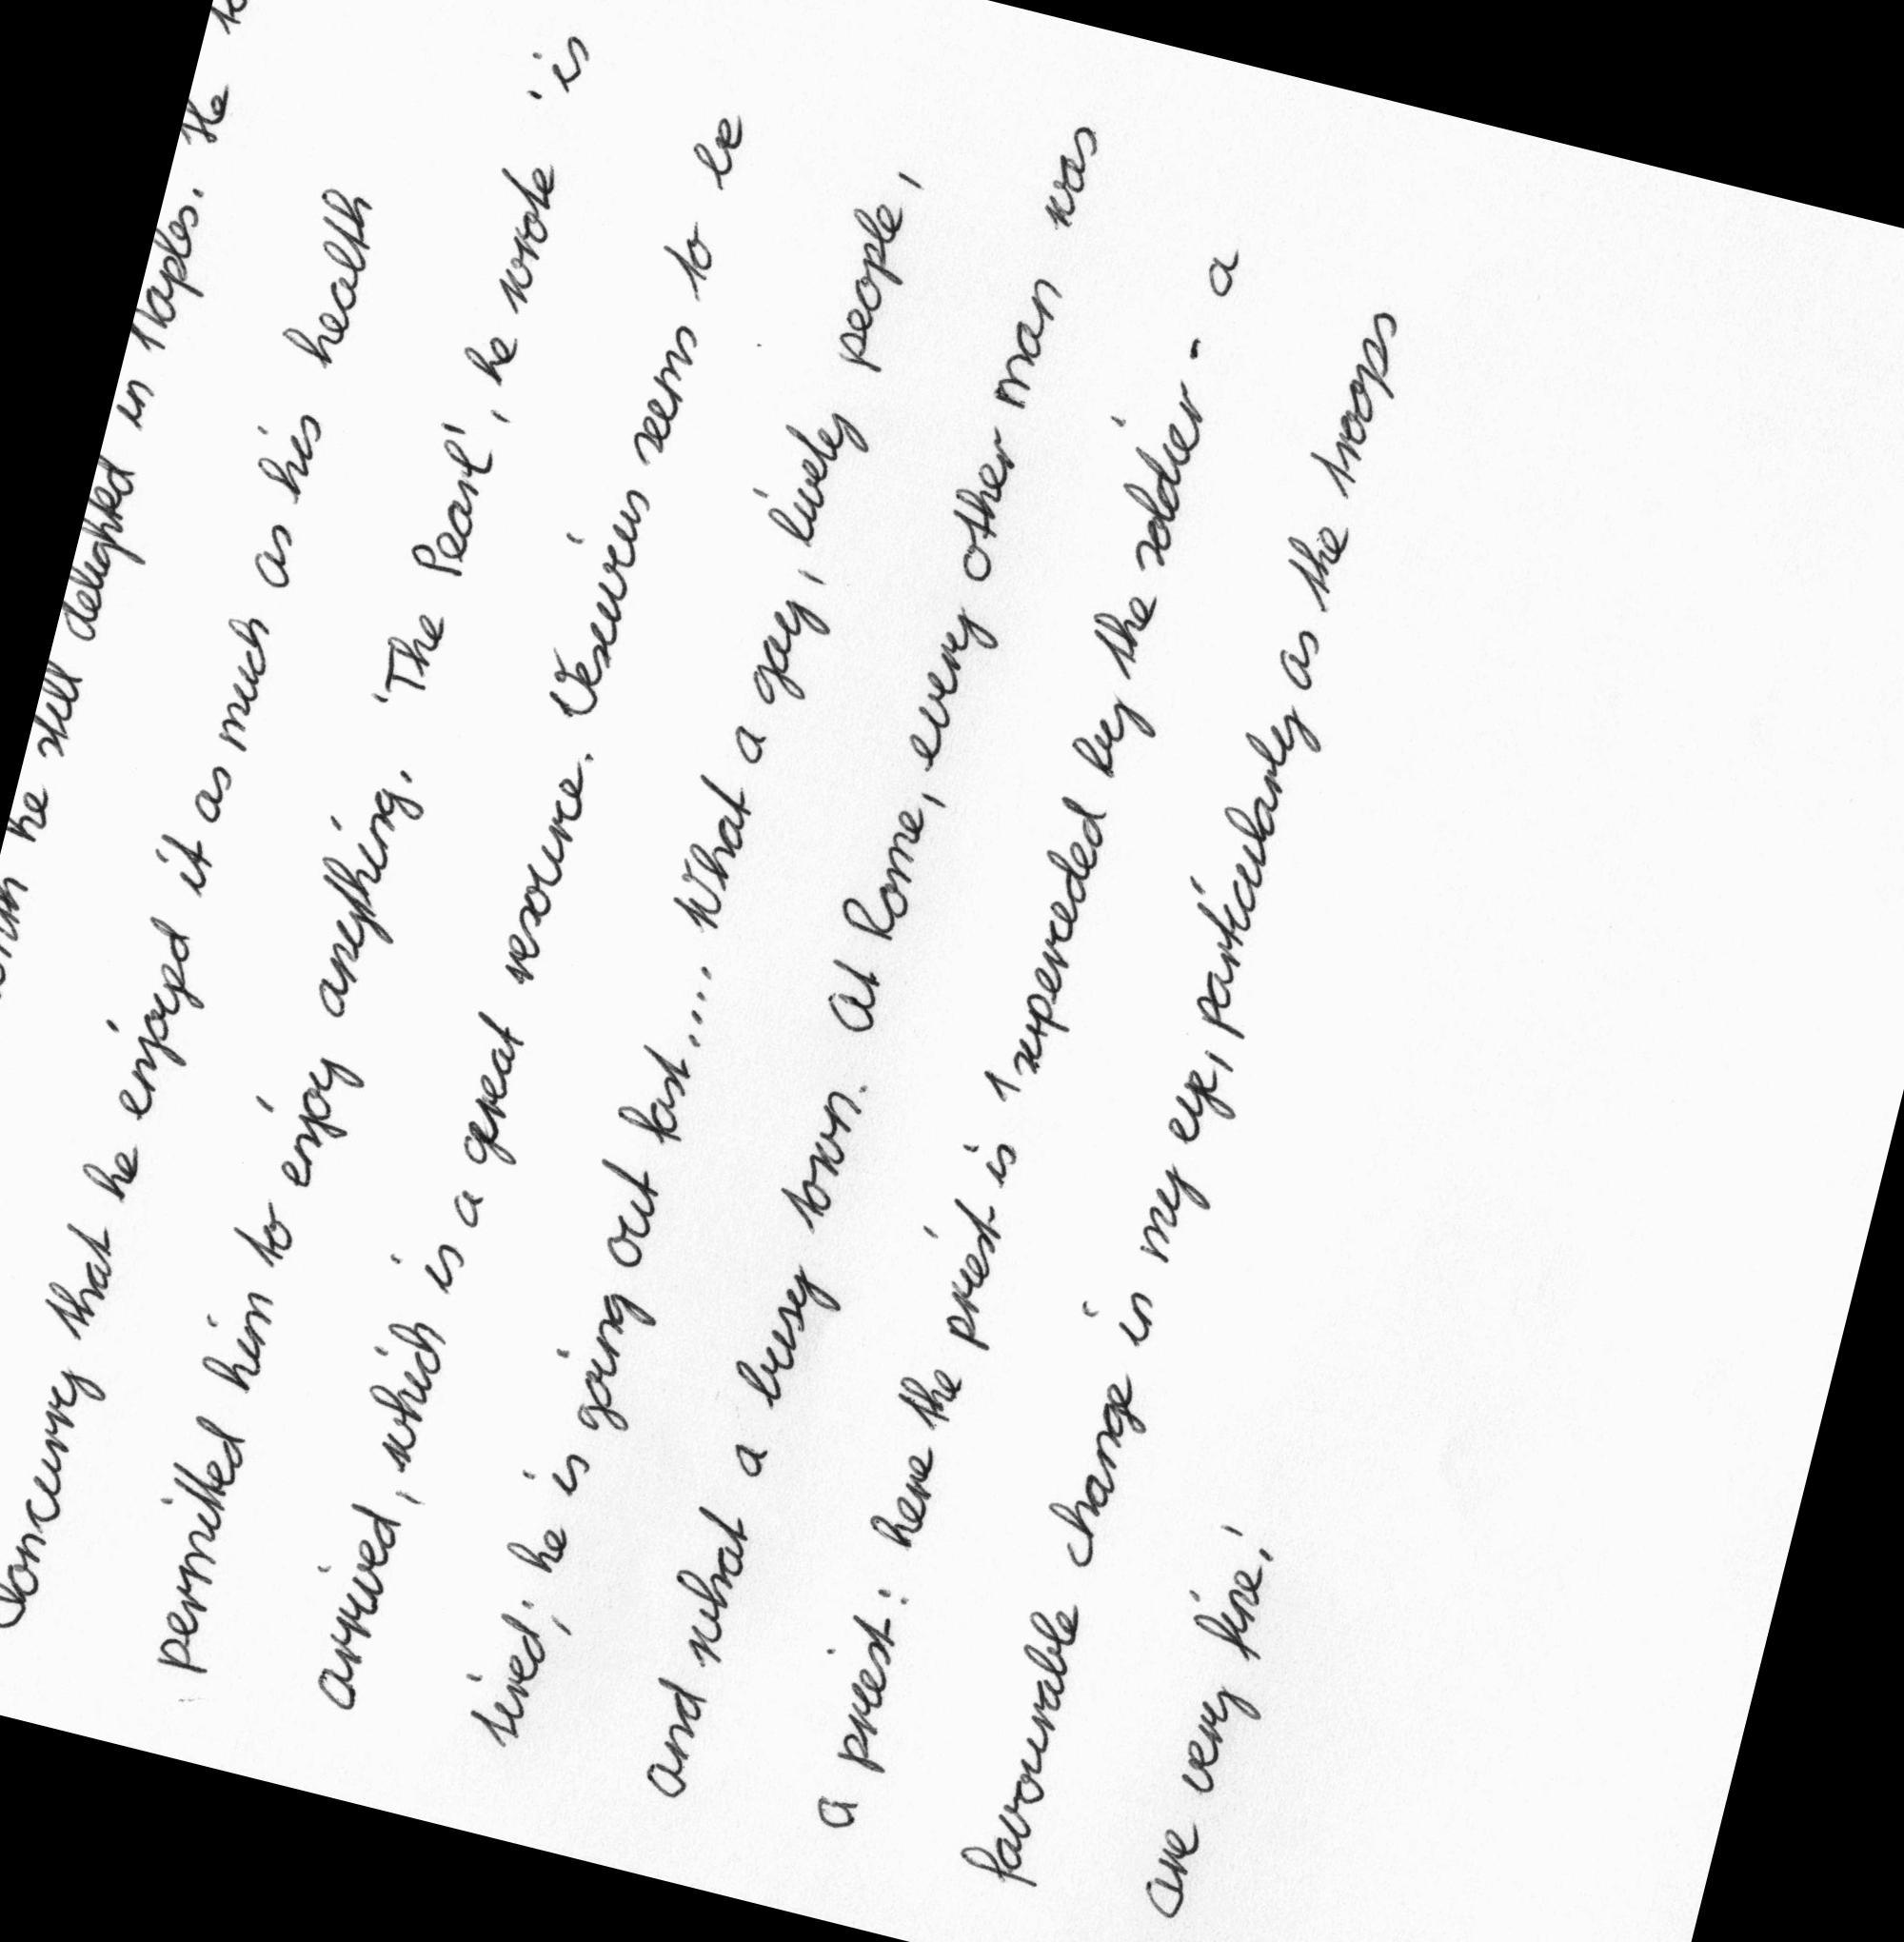 he still delighted in Naples. He
Concurry that he enjoyed it as much as his health
permitted him to enjoy anything. 'The Pearl', he wrote 'is
arrived, which is a great resource. Vesuvius seems to be
tired; he is going out fast.... What a gay, lively people,
and what a busy town. At Rome, every other man was
a priest: here the priest is superceded by the soldier - a
favourable change in my eye, particularly as the troops
are very fine!